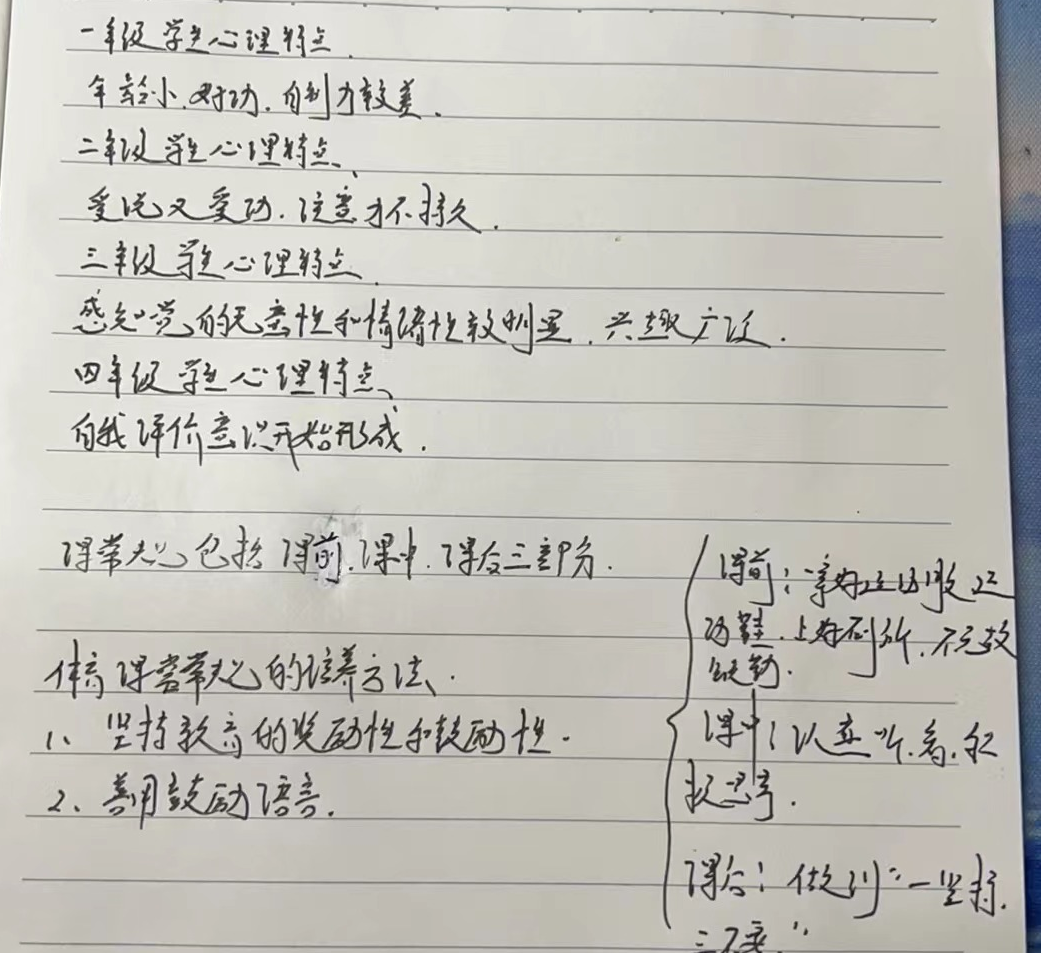 一年级学生心理特点
年龄小.好动.自制力较差.
二年级学生心理特点、
爱说又爱动.注意力不持久.
三年级学生心理特点
感知觉的无意性和情绪性较明显.兴趣广泛.
四年级学生心理特点、
自我评价意识开始形成.
课常规包括课前.课中.课后三部分.
体育课堂常规的培养方法、.
1、坚持教育的奖励性和鼓励性.
2、善用鼓励语言.
课前：穿好运动服运
动鞋.上好厕所.不无故
缺勤.
课中：认真听.看.积
极思考.
课后：做到“一坚持.
三不变”